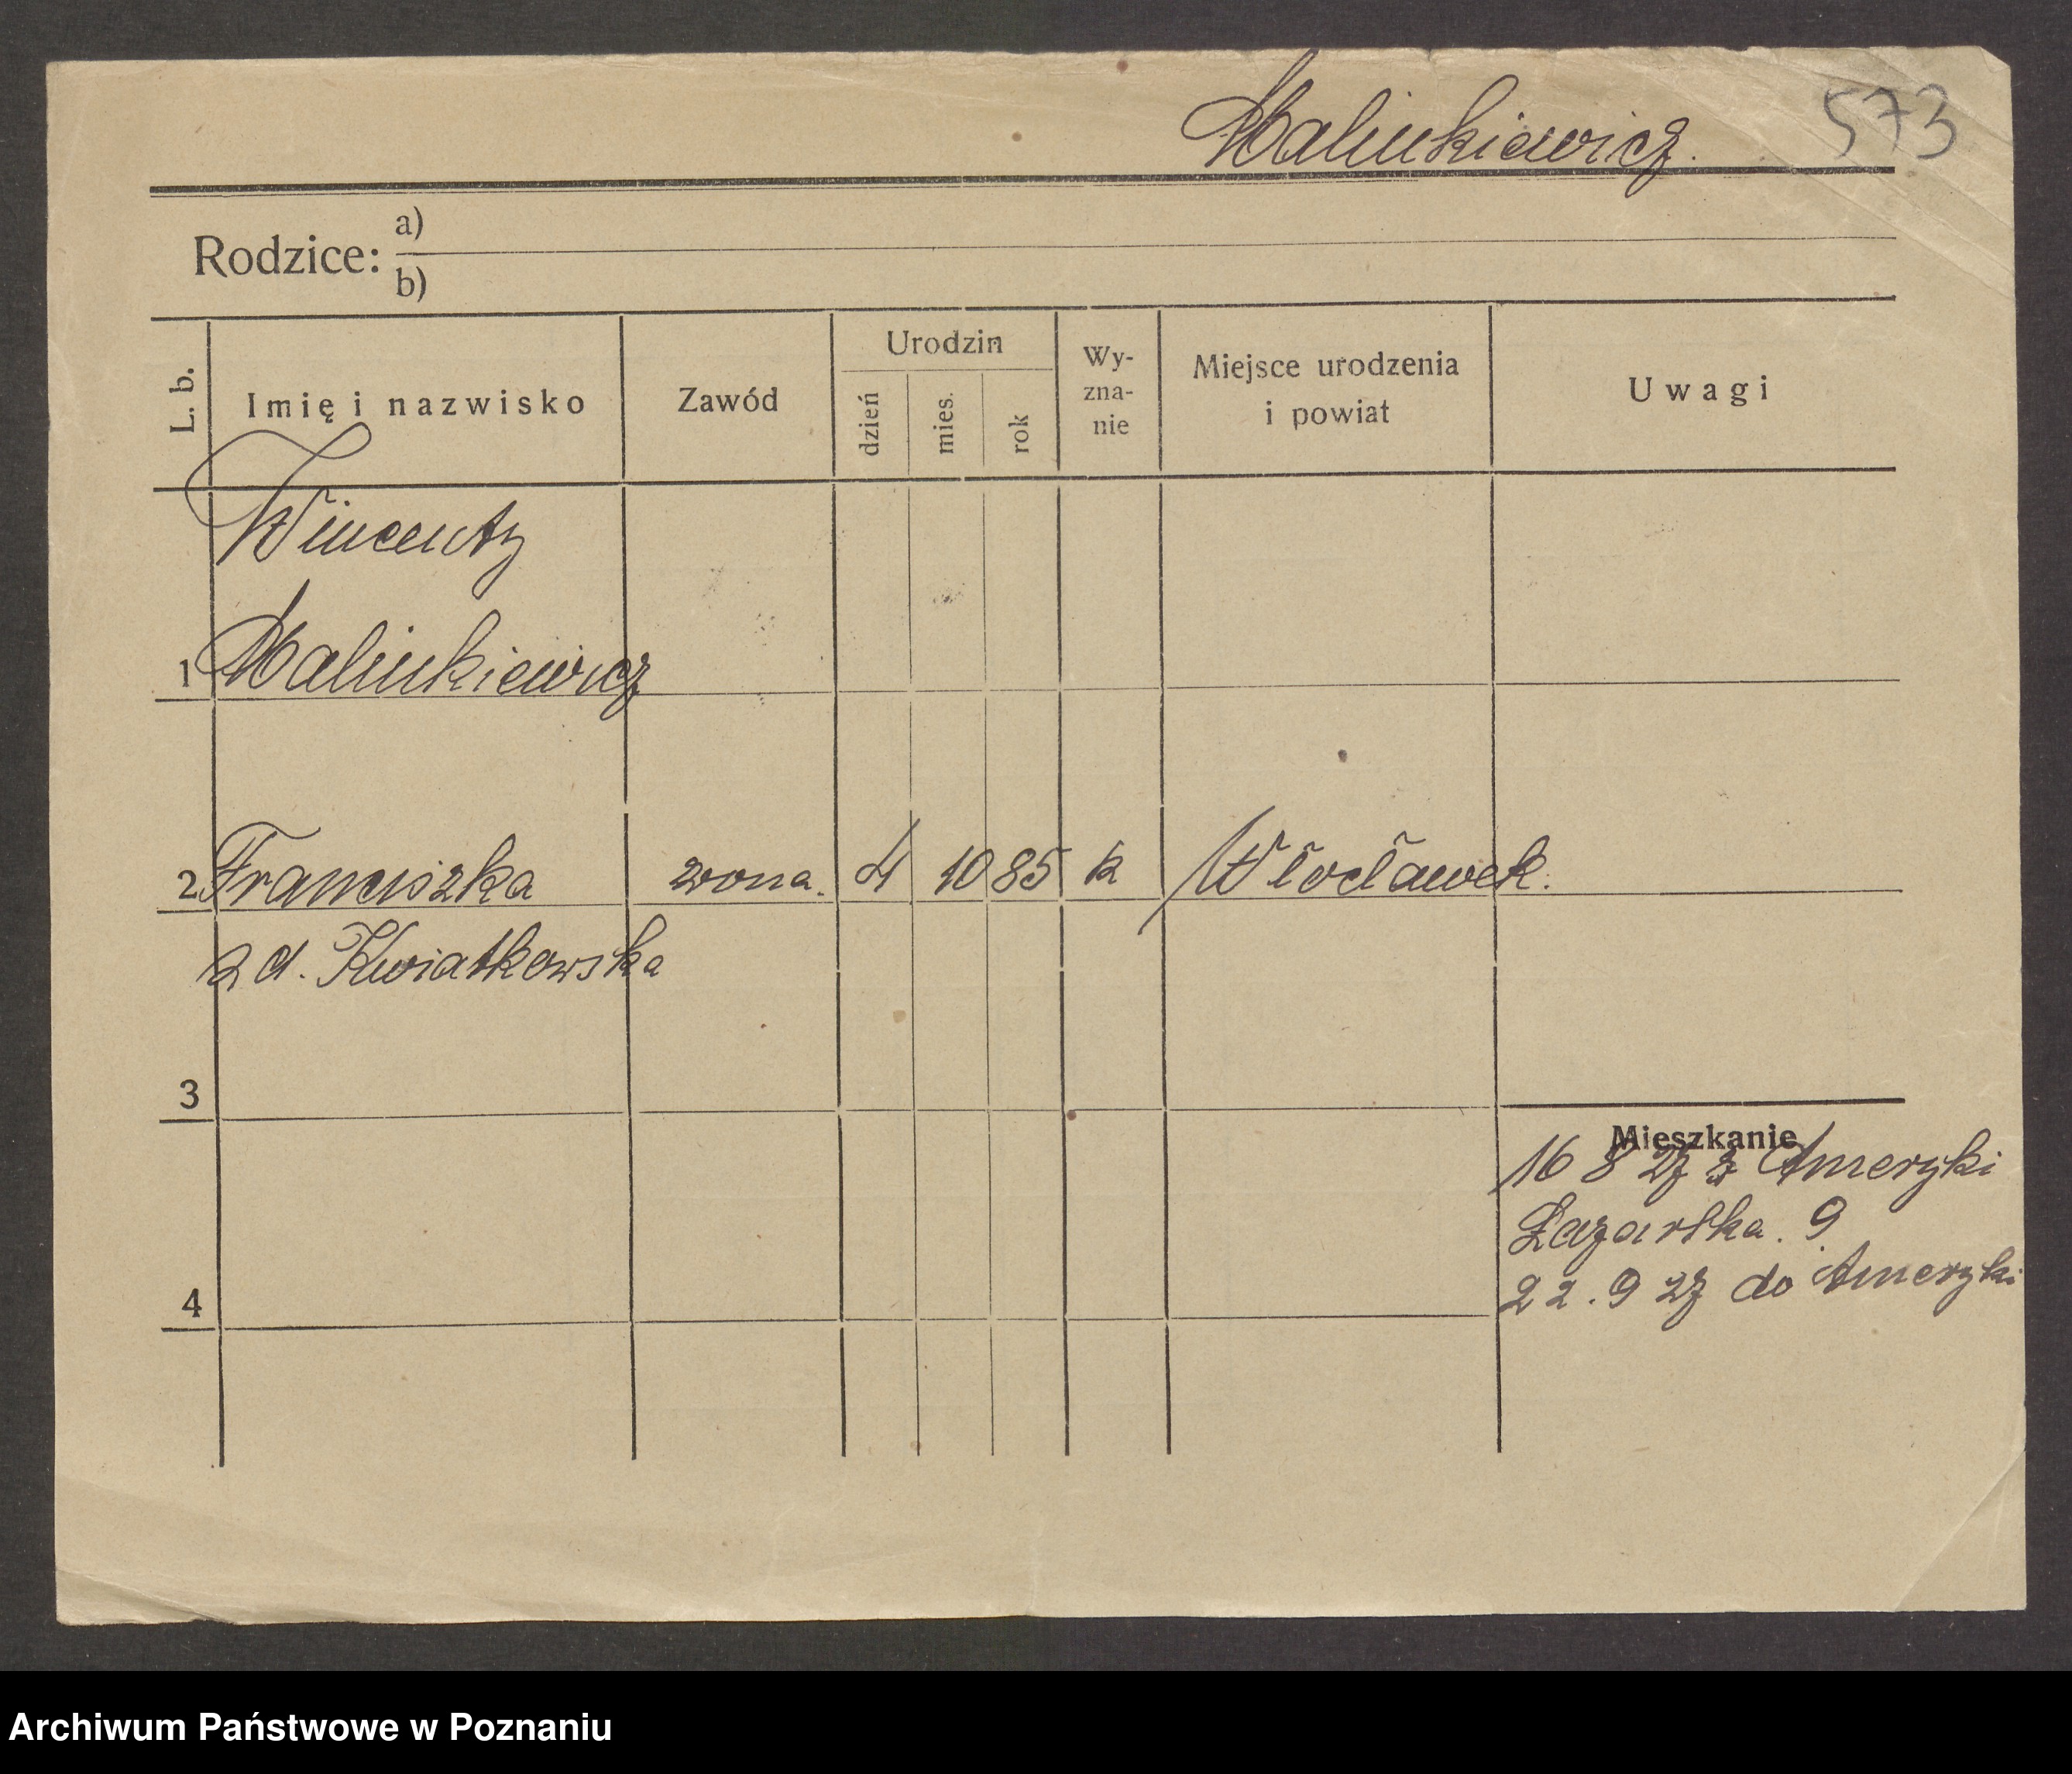 Malinkiewicz.
573
Rodzice: a)
b)
L. b.
Imię i nazwisko
Zawód
Urodzin
dzień
mies.
rok
Wy-
zna-
nie
Miejsce urodzenia
i powiat
Uwagi
Wincenty
1 Malinkiewicz
2 Franciszka żona. 4 10 85 k Włocławek.
z d. Kwiatkowska
3
Mieszkanie
16 8 27 z Ameryki
Łazarska. 9
22.9 27 do Ameryki
4
Archiwum Państwowe w Poznaniu